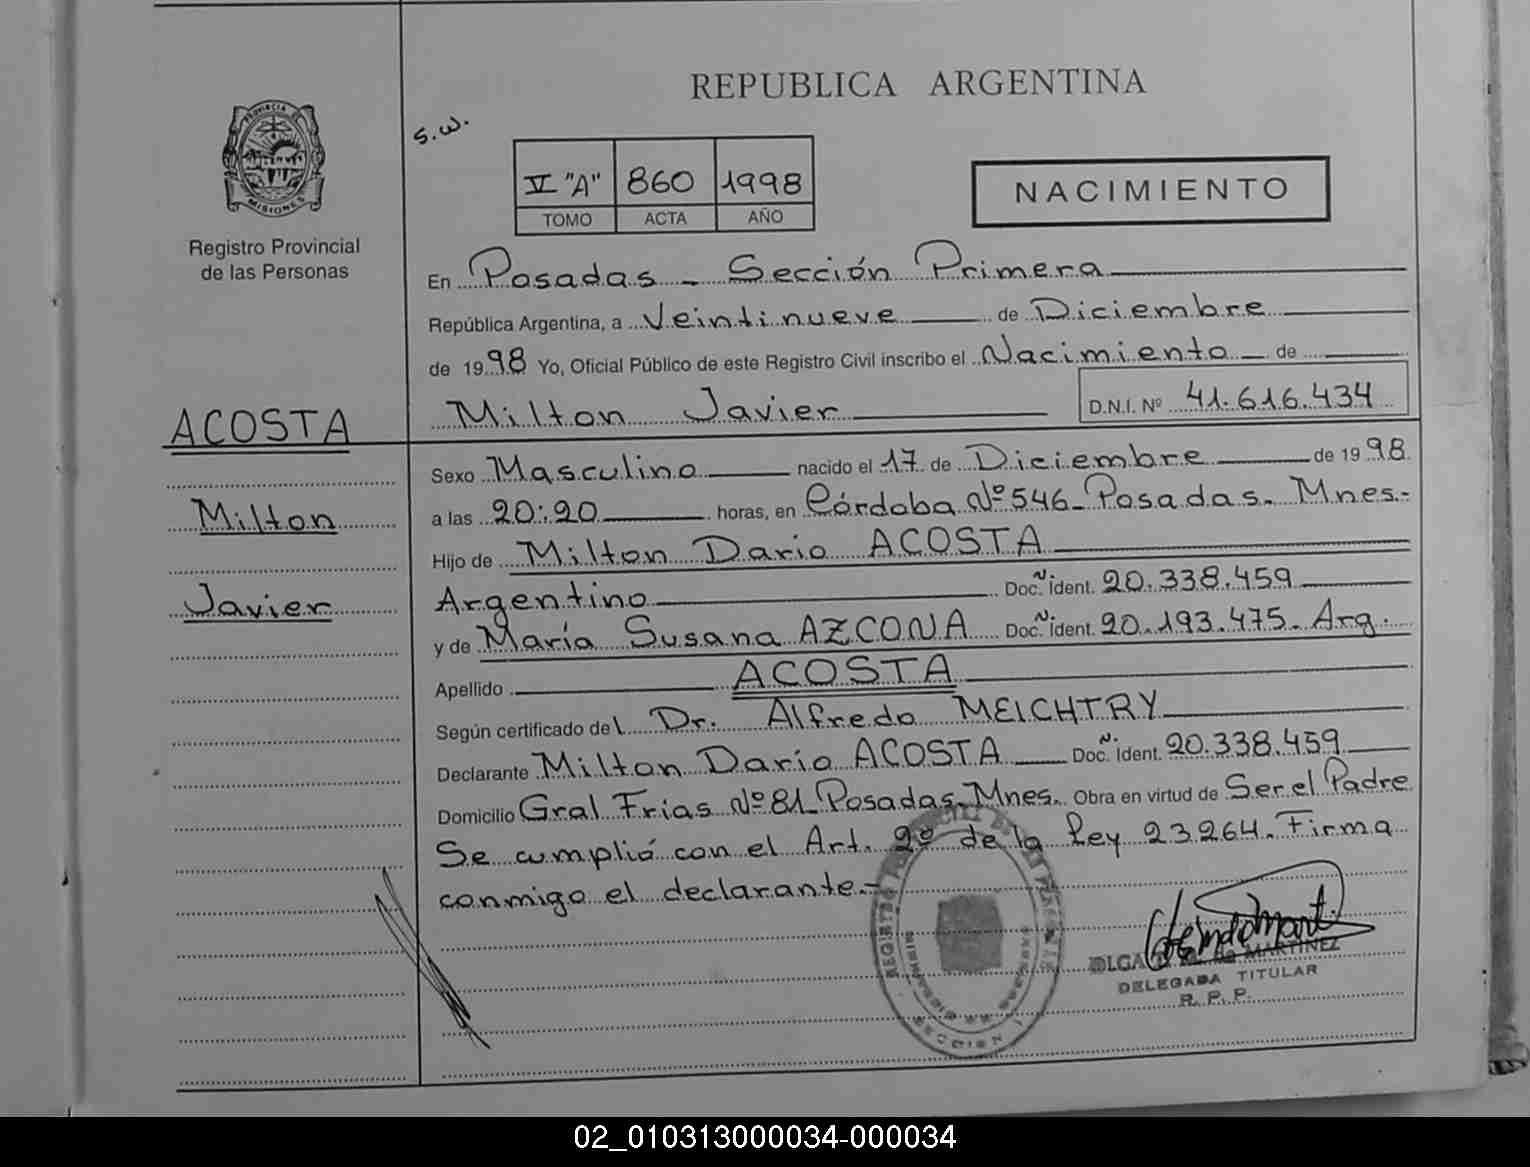 REPUBLICA ARGENTINA
s.w.
PROVINCIA
MISIONES
Registro Provincial
de las Personas
V "A" 860 1998
TOMO ACTA AÑO
NACIMIENTO
En Posadas - Sección Primera
República Argentina, a Veintinueve de Diciembre
de 1998 Yo, Oficial Público de este Registro Civil inscribo el Nacimiento de
Milton Javier D.N.I. Nº 41.616.434
ACOSTA
Milton
Javier
Sexo Masculino nacido el 17 de Diciembre de 1998
a las 20:20 horas, en Córdoba Nº 546- Posadas. Mnes.-
Hijo de Milton Dario ACOSTA
Argentino Doc. Ñ Ident. 20.338.459
y de María Susana AZCONA Doc. Ñ Ident. 20.193.475- Arg.
Apellido ACOSTA
Según certificado del Dr. Alfredo MEICHTRY
Declarante Milton Darío ACOSTA Doc. Ñ Ident. 20.338.459
Domicilio Gral Frias Nº 81 Posadas-Mnes. Obra en virtud de Ser el Padre
Se cumplió con el Art. 2º de la Ley 23264. Firma
conmigo el declarante.-
SECCION 1
OLGA de MARTINEZ
DELEGADA TITULAR
R. P. P.
02_010313000034-000034